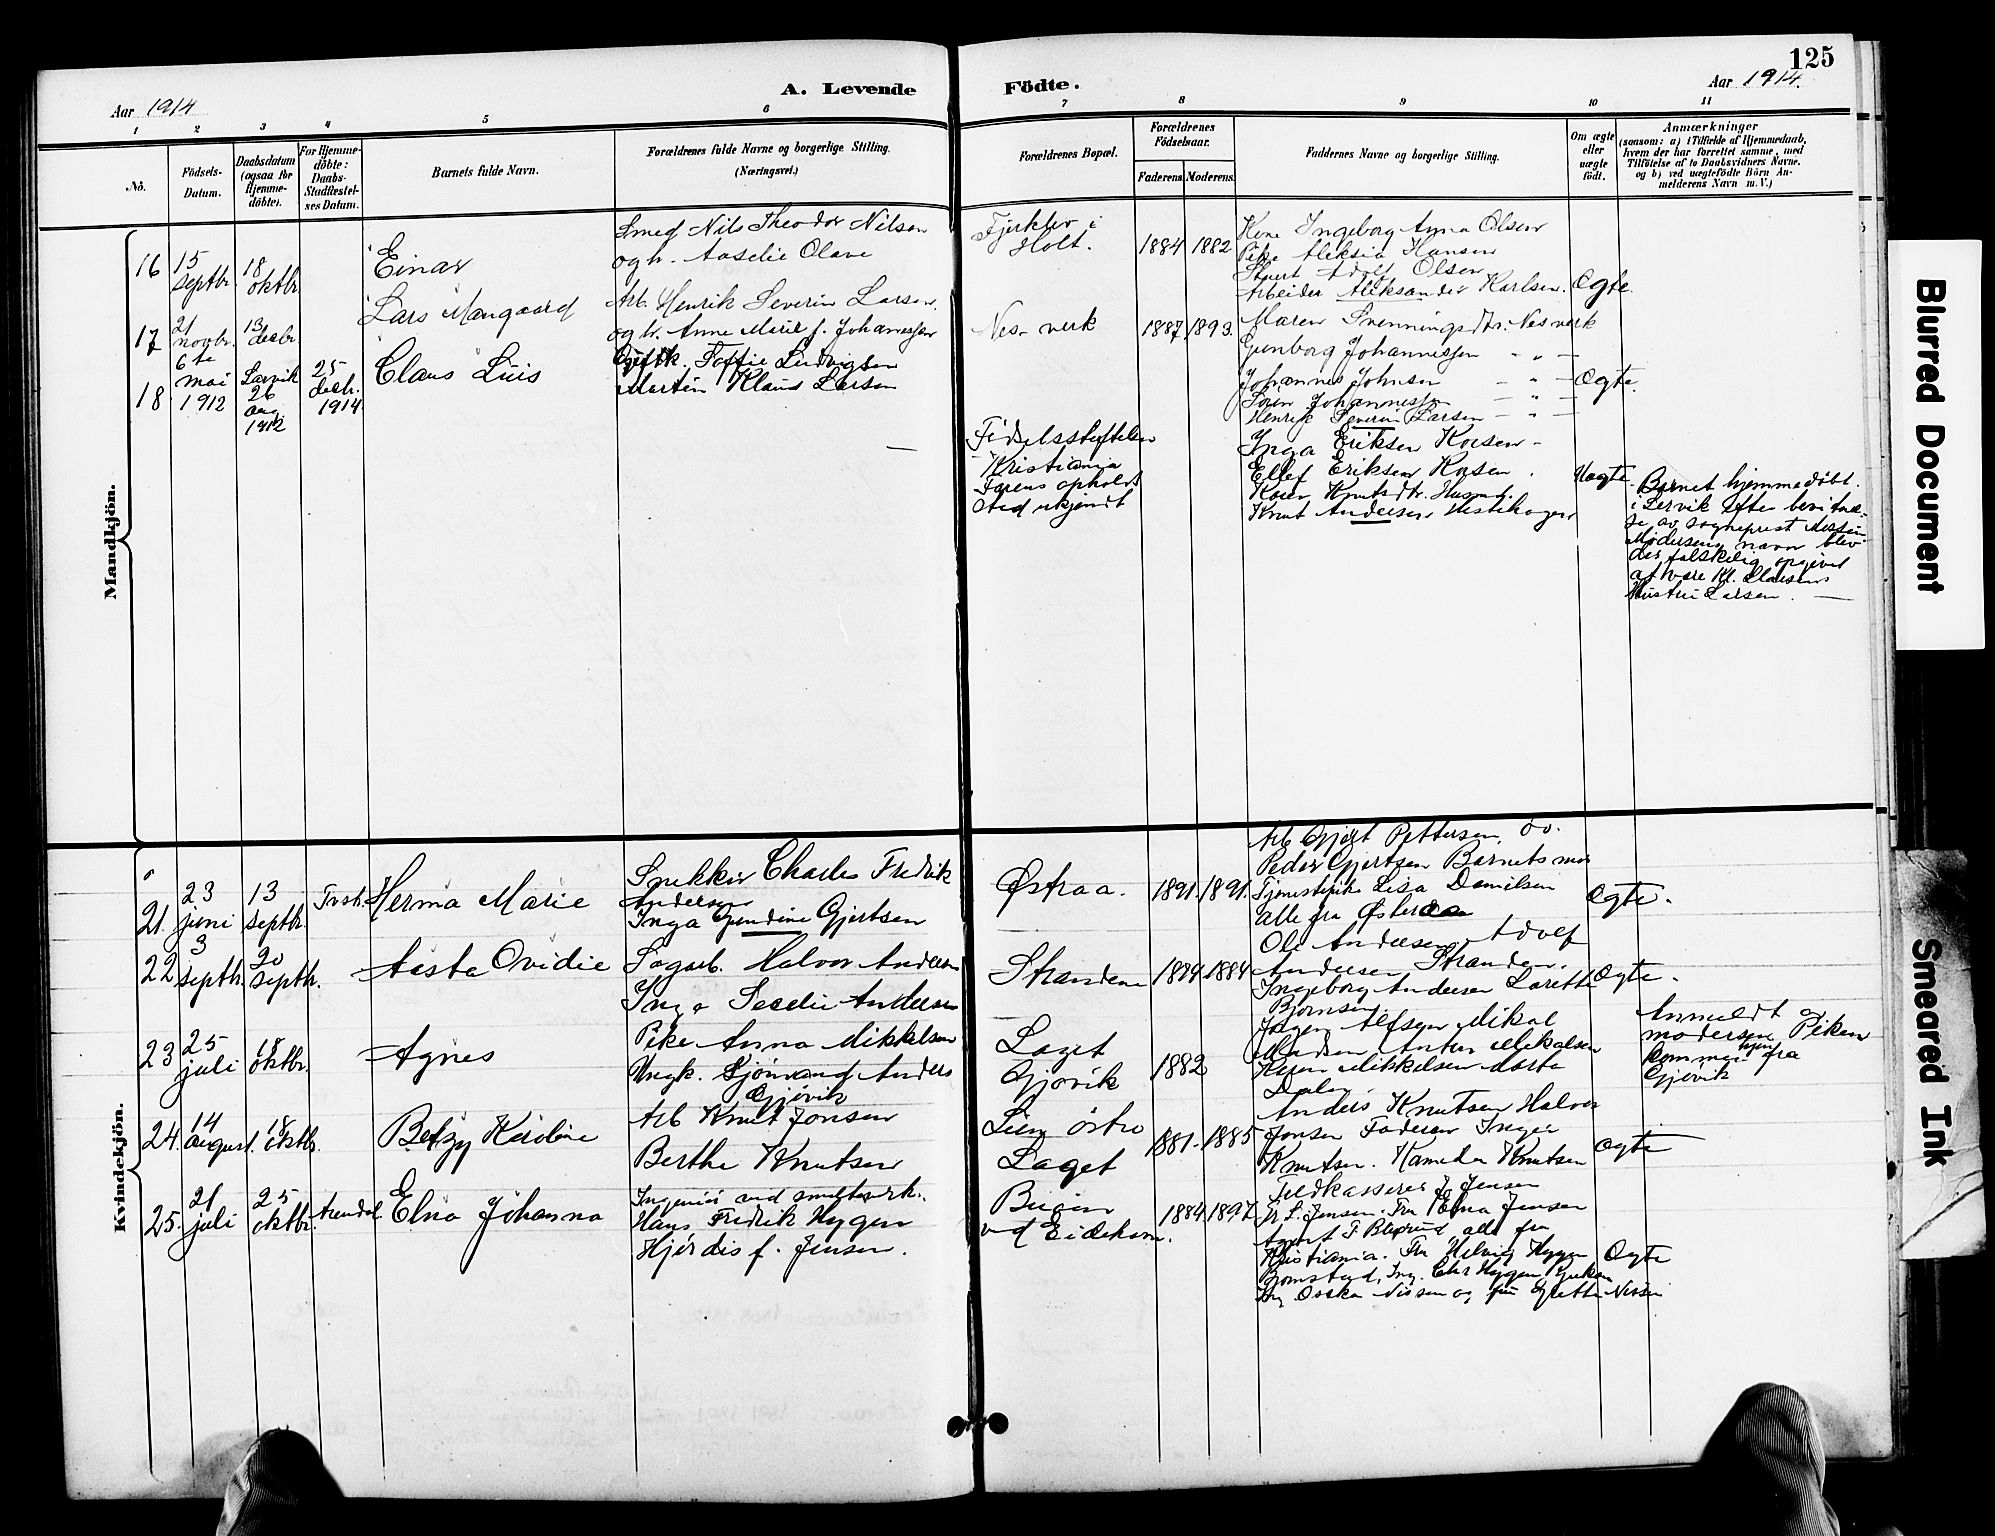 125
Aar 1914
A. Levende
Födte.
Aar 1914.
1 2 3 4 5 6 7 8 9 10 11
No.
Födsels-
Datum.
Daabsdatum
(ogsaa for
Hjemme-
döbte).
For Hjemme-
döbte:
Daabs-
Stadfæstel-
ses Datum.
Barnets fulde Navn.
Forældrenes fulde Navne og borgerlige Stilling.
(Næringsvei.)
Forældrenes Bopæl.
Forældrenes
Födselsaar.
Faderens.
Moderens.
Faddernes Navne og borgerlige Stilling.
Om ægte
eller
uægte
födt.
Anmærkninger
(saasom: a) i Tilfælde af Hjemmedaab,
hvem der har forrettet samme, med
Tilföielse af to Daabsvidners Navne,
og b) ved uægtefödte Börn An-
melderens Navn m. V.)
Mandkjön.
16
15
septbr.
18
oktbr.
Einar
Smed Nils Theodor Nilsen
og h. Aaselie Olave
i
Holt.
1884
1882
Kone Ingeborg Anna Olsen
Pike Aleksia Hansen
Adolf Olsen
Arbeider Aleksander Karlsen.
Ægte.
17
21
novbr.
13
decbr.
Lars Mangaard
Arb. Henrik Severin Larsen
og h. Anne Marie f. Johannessen
Nes verk
1887
1893.
Maren Svenningsdtr. Nesverk
Gunborg Johannessen - " -
Johannes Johnsen - " -
Sören Johannessen - " -
Henrik Severin Larsen - " -
Ægte.
18
6te
mai
1912
Larvik
26
aug.
1912
25
decbr.
1914
Claus Luis
Ludvigsen
Martin Klaus Larsen
Födselsstiftelsen
Kristiania
Farens opholds
sted ukjendt
Inga Eriksen Kosen -
Ellef Eriksen Kosen.
Karen Knutsdtr.
Knut Andersen
Uægte.
Barnet hjemmedöbt
i Larvik efter bevitnel-
se av sogneprest
Moderens navn blev
der falskelig opgivet
at være Kl. Larsens
Hustru Larsen.
Kvindekjön.
21.
23
juni
13
septbr.
Herma Marie
Snekker Charles Fredrik
Andersen
Inga Gundine Gjertsen
Østraa.
1891.
1891.
Arb Gjert Pettersen,
Peder Gjertsen Barnets mor
Tjenestepike Lisa Danielsen
alle fra Østeraa
Ægte.
22
3
septbr.
20
septbr.
Aasta Ovidie
Sagarb. Halvor Andersen
Inga Andersen
Stranden
1884
1884
Ole Andersen, Adolf
Andersen Stranden,
Ingeborg Andersen Laretta
Bjornsen
Ægte.
23
25
juli
18
oktbr.
Agnes
Pike Anna Mikkelsen
Ungk. Anders
Gjövik
Laget
Gjøvik
1882
Jörgen Alfsen Mikal
Madsen Anton Mikalsen
Karen Mikkelsen Marta
Dalen
Anmeldt
moderen Piken
kommer hjem fra
Gjövik
24.
14
august.
18
oktbr.
Betsy Karoline
Arb Knut Jonsen
Berthe Knutsen
Lien östre
Laget
1881.
1885
Anders Knutsen Halvor
Jonsen Faderen Inger
Knutsen. Knutsen
Ægte
25.
21
juli
25
oktbr.
Arendal
Elna Johanna
Ingeniör ved smelteverk.
Hans Fredrik Hygen
Hjördis f. Jensen.
Buöen
ved Eidehavn.
1884
1897
J Jensen
Jensen. Fru Elna Jensen
alle fra
Kristiania. Fru Helvig Hygen
Bjornstad, Ing. Chr Hygen,
Ing Oskar Nissen og fru Grethe Nissen
Ægte
Blurred Document
Smeared Ink